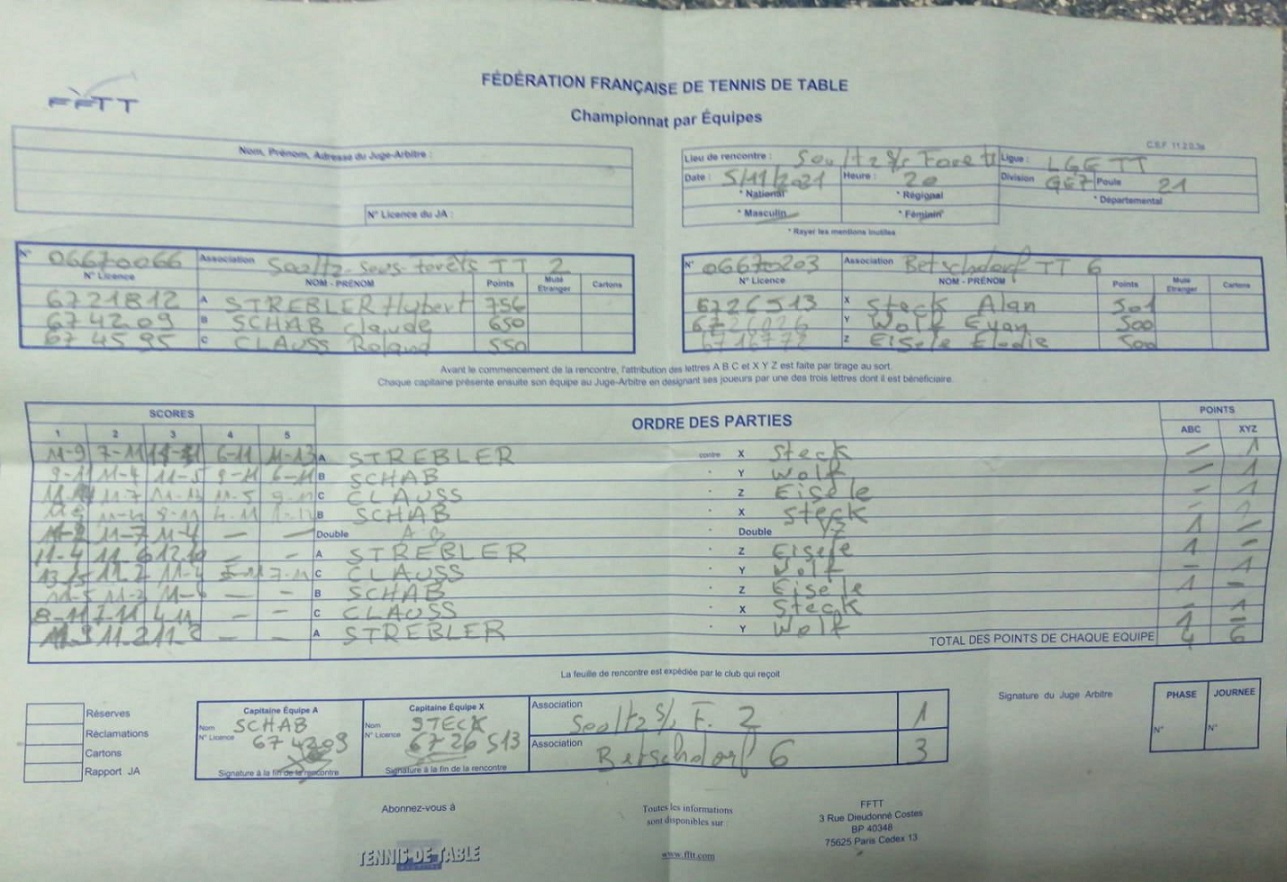 FFTT
FÉDÉRATION FRANÇAISE DE TENNIS DE TABLE
Championnat par Équipes
C.S.F. 11.2.0.3a
Nom, Prénom, Adresse du Juge-Arbitre :
N° Licence du JA :
Lieu de rencontre : Soultz s/s Forêt Ligue : LGETT
Date : 5/11/2021 Heure : 20 Division GE7 Poule 21
* National * Régional * Départemental
* Masculin * Féminin
* Rayer les mentions inutiles
N° 06670066 Association Soultz-sous-forêts TT 2
N° Licence NOM - PRÉNOM Points Muté Etranger Cartons
6721812 A STREBLER Hubert 756
674209 B SCHAB claude 650
674595 C CLAUSS Roland 550
N° 06670203 Association Betschdorf TT 6
N° Licence NOM - PRÉNOM Points Muté Etranger Cartons
6726513 X Steck Alan 501
6726026 Y Wolf Evan 500
6716772 Z Eisele Elodie 500
Avant le commencement de la rencontre, l'attribution des lettres A B C et X Y Z est faite par tirage au sort.
Chaque capitaine présente ensuite son équipe au Juge-Arbitre en désignant ses joueurs par une des trois lettres dont il est bénéficiaire.
SCORES ORDRE DES PARTIES POINTS
1 2 3 4 5 ABC XYZ
11-9 7-11 6-11 11-13 A STREBLER contre X Steck - 1
9-11 11-4 11-5 9-11 6-11 B SCHAB Y Wolf - 1
11-7 11-13 11-5 C CLAUSS Z Eisele - 1
B SCHAB X Steck -
11-7 11-4 - - Double A B Double YZ 1 -
11-4 11-6 12-10 - - A STREBLER Z Eisele 1 -
13-15 11-2 11-4 5-11 7-11 C CLAUSS Y Wolf - 1
11-5 - - B SCHAB Z Eisele 1 -
8-11 7-11 4-11 - - C CLAUSS X Steck - 1
11-9 11-2 - - A STREBLER Y Wolf 1 -
TOTAL DES POINTS DE CHAQUE EQUIPE 4 6
La feuille de rencontre est expédiée par le club qui reçoit
Réserves
Réclamations
Cartons
Rapport JA
Capitaine Équipe A
Nom SCHAB
N° Licence 674209
Signature à la fin de la rencontre
Capitaine Équipe X
Nom STECK
N° Licence 6726513
Signature à la fin de la rencontre
Association Soultz s/s F. 2 1
Association Betschdorf 6 3
Signature du Juge Arbitre
PHASE JOURNEE
N° N°
Abonnez-vous à
TENNIS DE TABLE
Toutes les informations
sont disponibles sur
www.fftt.com
FFTT
3 Rue Dieudonné Costes
BP 40348
75625 Paris Cedex 13